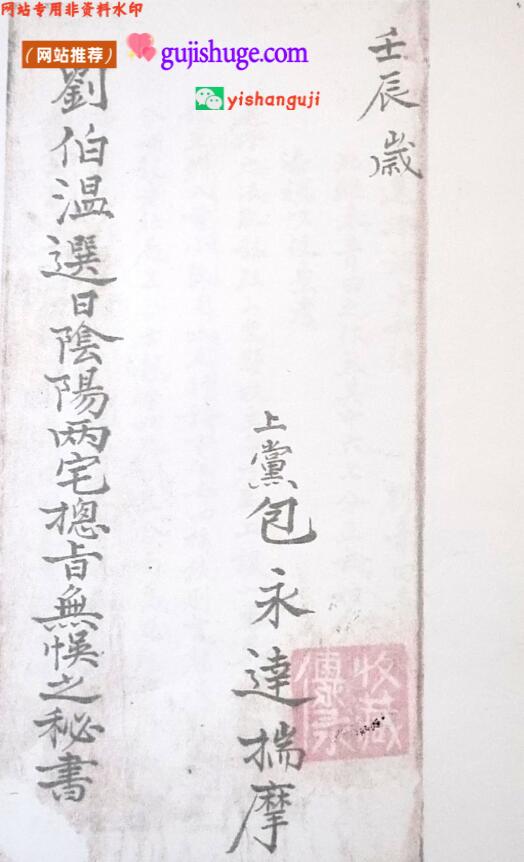 网站专用非资料水印
（网站推荐）
gujishuge.com
yishanguji
壬辰歲
上黨包永達揣摩
劉伯温選日陰陽两宅摠旨無悞之秘書
收藏